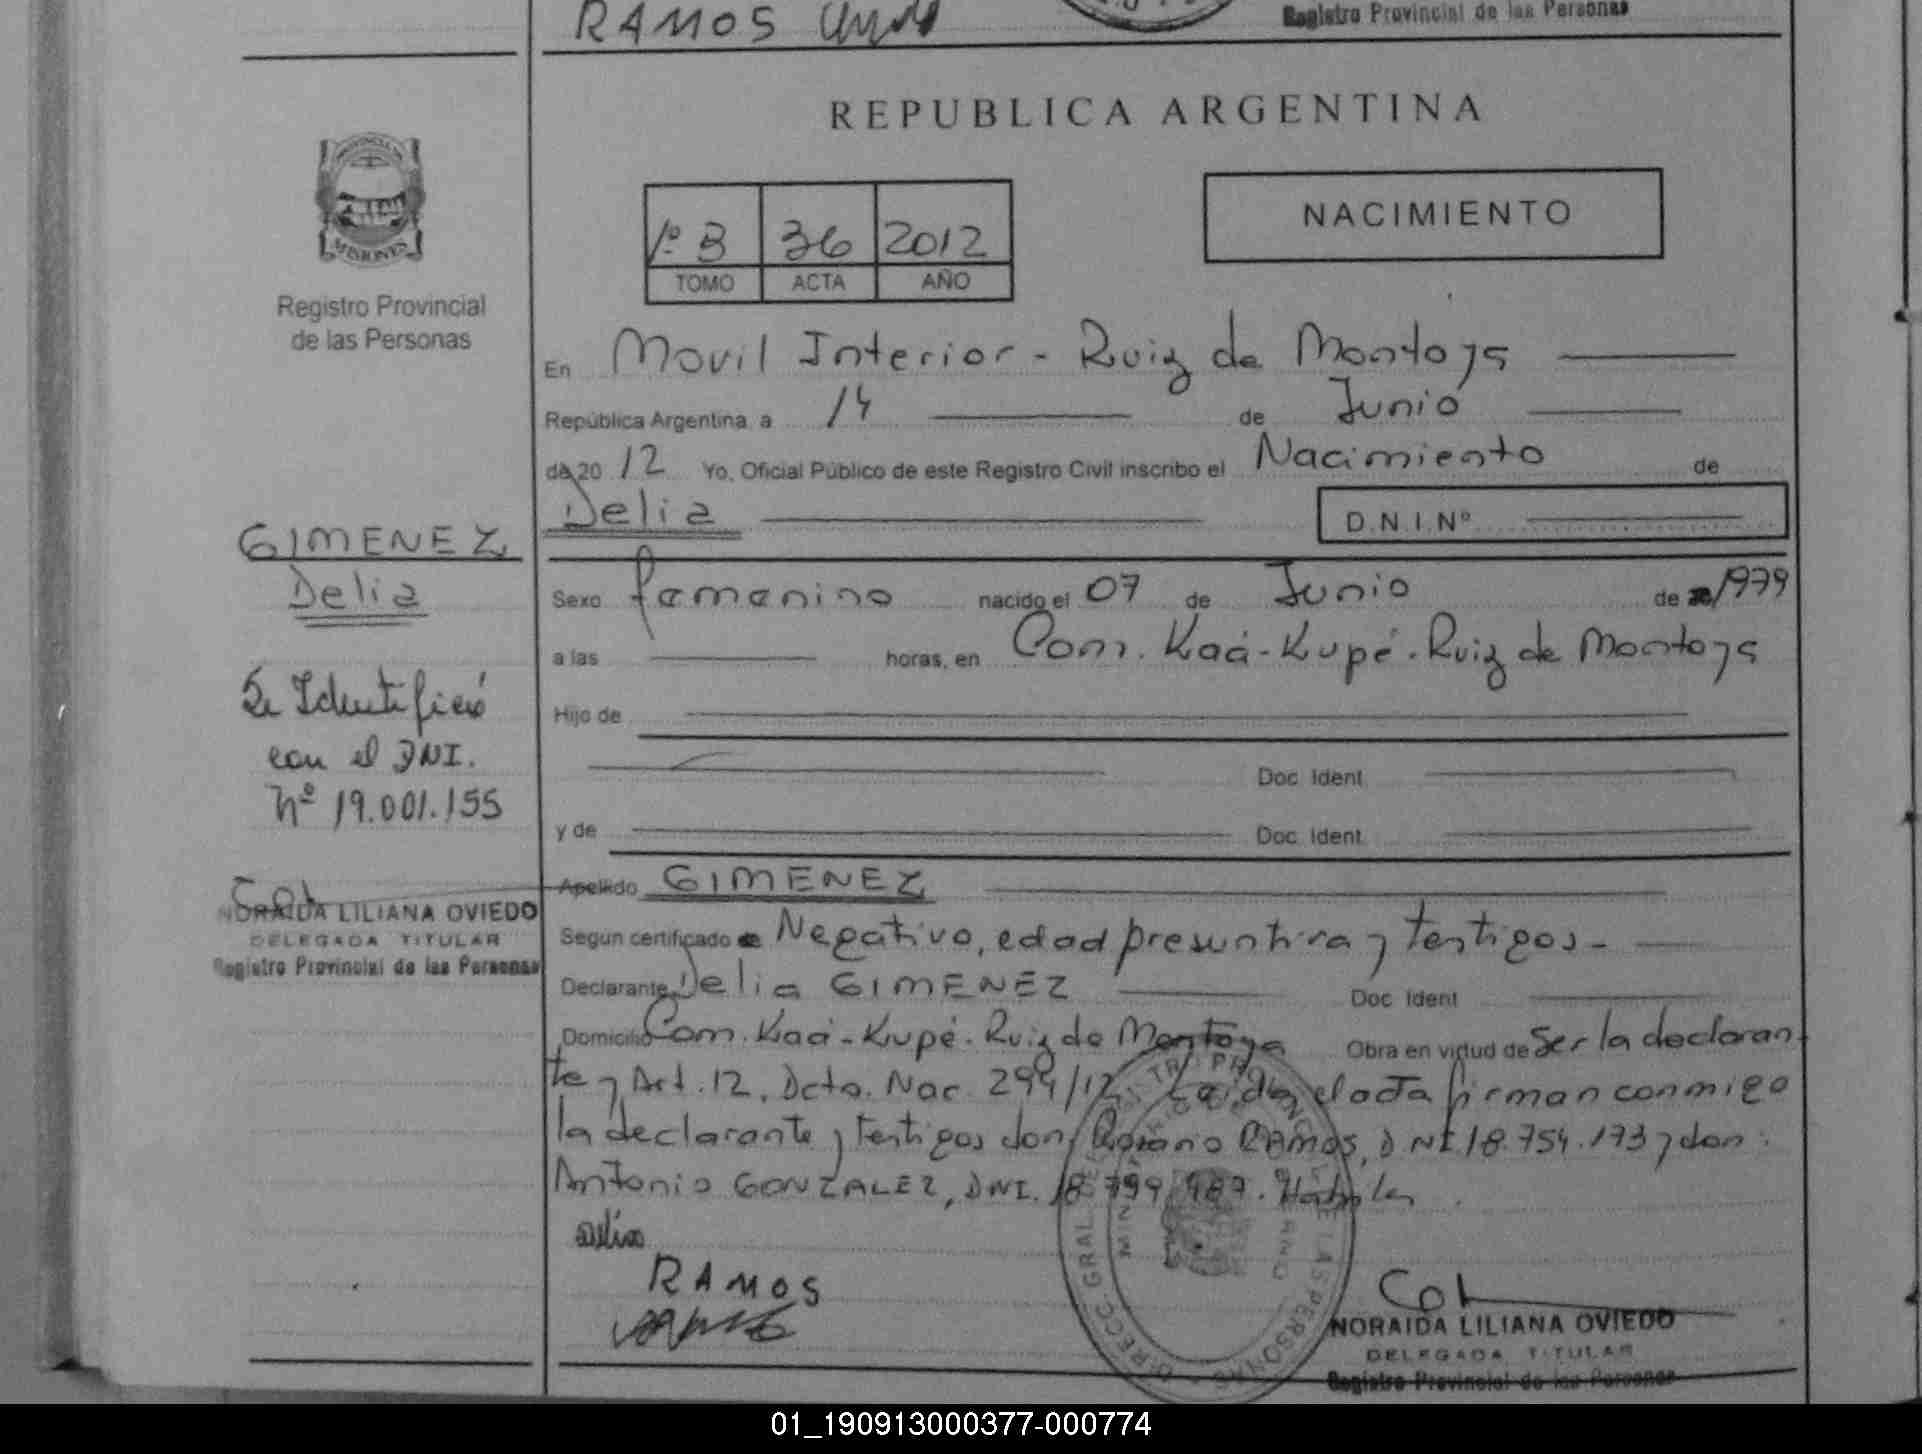 RAMOS
Registro Provincial de las Personas
REPUBLICA ARGENTINA
PROVINCIA DE
MISIONES
Registro Provincial
de las Personas
1º B 36 2012
TOMO ACTA AÑO
NACIMIENTO
En Movil Interior - Ruiz de Montoya
República Argentina a 14 de Junio
de 20 12 Yo, Oficial Público de este Registro Civil inscribo el Nacimiento de
Delia D.N.I.Nº
GIMENEZ
Delia
Se Identificó
con el DNI.
Nº 19.001.155
NORAIDA LILIANA OVIEDO
DELEGADA TITULAR
Registro Provincial de las Personas
Sexo femenino nacido el 07 de Junio de 1979
a las horas, en Com. Kaá-Kupé. Ruiz de Montoya
Hijo de
Doc. Ident.
y de Doc. Ident.
Apellido GIMENEZ
Segun certificado Negativo, edad presuntiva y testigos -
Declarante Delia GIMENEZ Doc. Ident
Domicilio Com. Kaá-Kupé. Ruiz de Montoya Obra en virtud de Ser la declaran
te y Art. 12. Dcto. Nac. 294/12. Leída el acta firman conmigo
la declarante y testigos don: RAMOS, DNI 18.754.173 y don:
Antonio GONZALEZ, DNI. 18.799.987.
Delia
RAMOS
DIRECC. GRAL. DEL REGISTRO PROVINCIAL DE LAS PERSONAS
NORAIDA LILIANA OVIEDO
DELEGADA TITULAR
Registro Provincial de las Personas
01_190913000377-000774